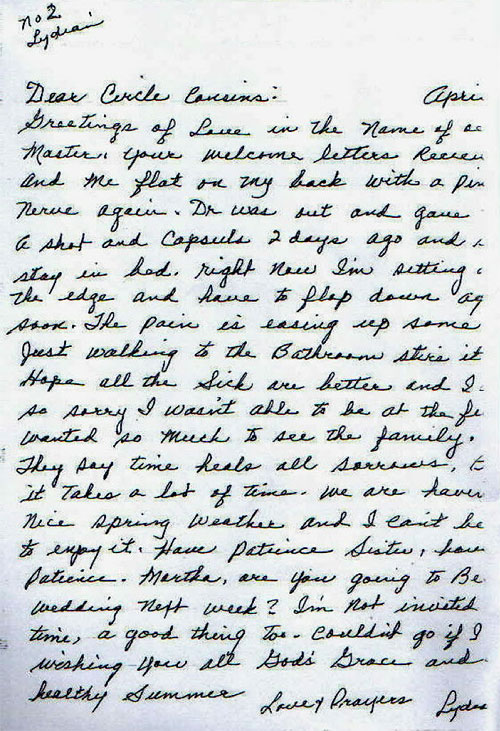 no 2
Lydian
Dear Circle Cousins: Apri
Greetings of Love in the Name of o
Master. Your welcome letters Receiv
and me flat on my back with a Pin
Nerve again. Dr was out and gave
a shot and Capsuls 2 days ago and
stay in bed. right now I'm setting
the edge and have to flop down ag
soon. The pain is easing up some
Just walking to the Bathroom stirs it
Hope all the Sick are better and I
so sorry I wasn't able to be at the fu
wanted so much to see the family.
They say time heals all sorrows, t
it takes a lot of time. We are haven
Nice spring weather and I can't be
to enjoy it. Have Patience Sister, have
Patience. Martha, are you going to Be
wedding Next week? I'm Not invited
time, a good thing too. Couldn't go if I
wishing you all God's Grace and
healthy Summer
Love & Prayers Lydia